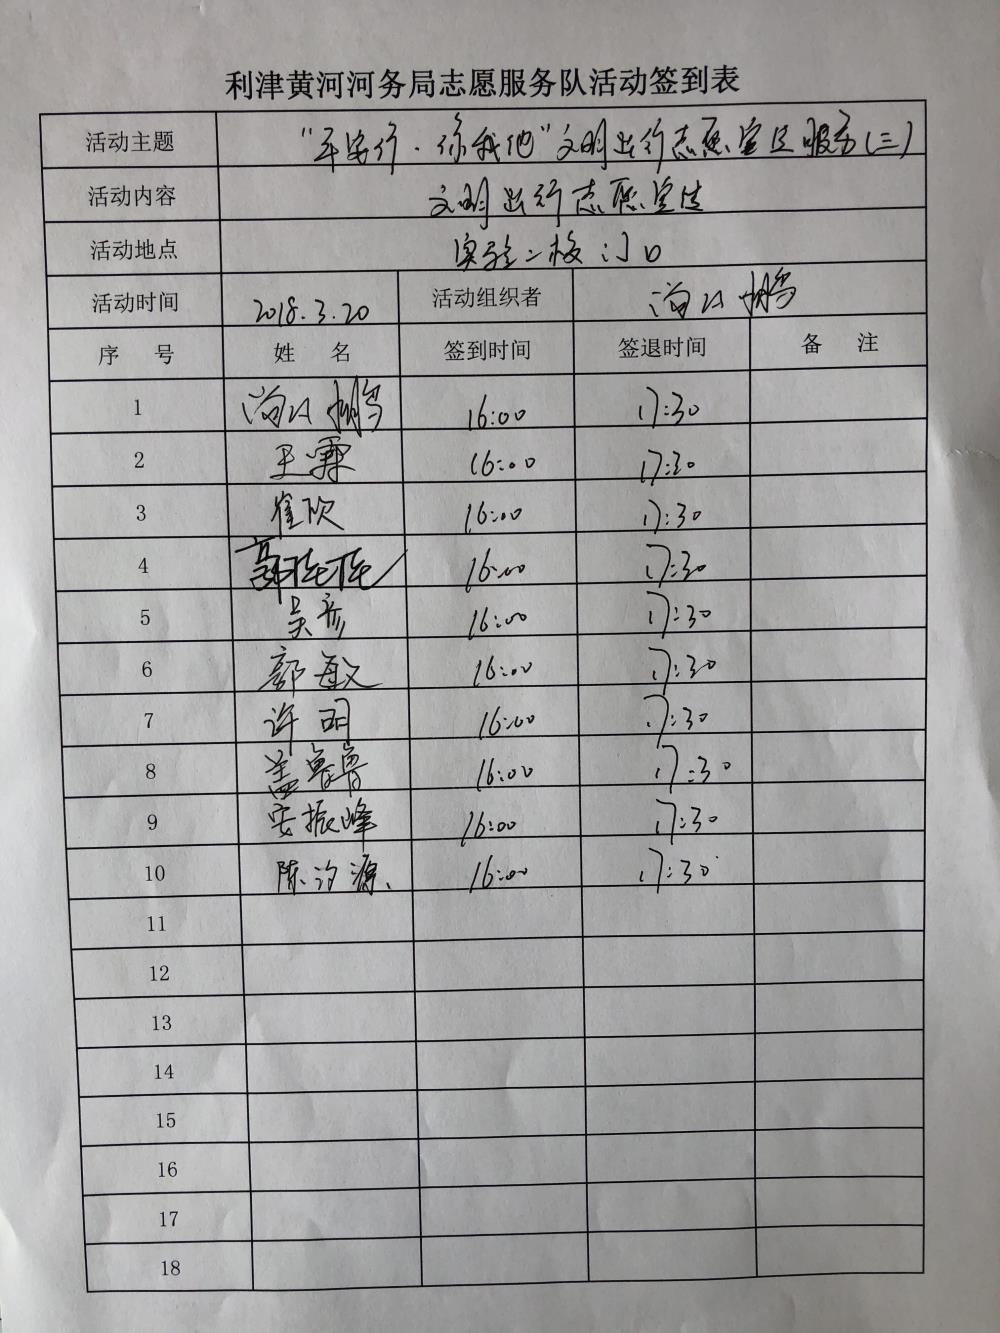 利津黄河河务局志愿服务队活动签到表
活动主题 “平安行·你我他”文明出行志愿宣传服务(三)
活动内容 文明出行志愿宣传
活动地点 实验二校门口
活动时间 2018.3.20 活动组织者 尚公鹏
序 号 姓 名 签到时间 签退时间 备 注
1 尚公鹏 16:00 17:30
2 王霖 16:00 17:30
3 崔欣 16:00 17:30
4 16:00 17:30
5 吴彦 16:00 17:30
6 郭敏 16:00 17:30
7 许明 16:00 17:30
8 盖鲁鲁 16:00 17:30
9 安振峰 16:00 17:30
10 陈汐源、 16:00 17:30
11
12
13
14
15
16
17
18